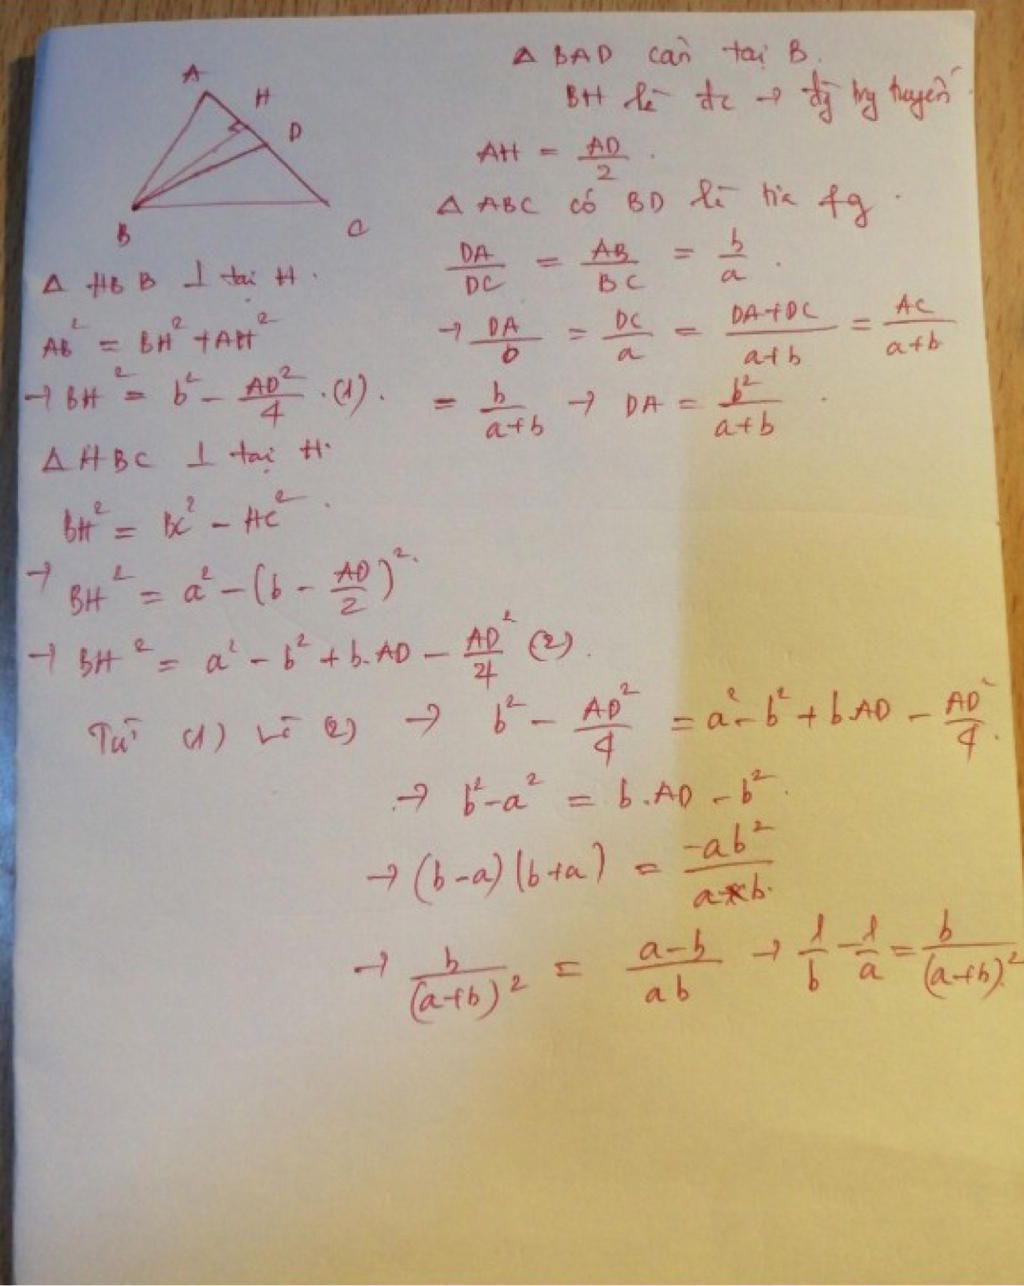 A
H
D
B
C
Δ BAD cân tại B.
BH là đc → đg trg tuyến
AH = AD/2 .
Δ ABC có BD là tia fg .
DA/DC = AB/BC = b/a .
→ DA/b = DC/a = DA+DC/a+b = AC/a+b
= b/a+b → DA = b²/a+b .
Δ HBB ⊥ tại H .
AB² = BH² + AH²
→ BH² = b² - AD²/4 . (1) .
Δ HBC ⊥ tại H.
BH² = BC² - HC² .
→ BH² = a² - (b - AD/2)² .
→ BH² = a² - b² + b.AD - AD²/4 (2) .
Từ (1) và (2) → b² - AD²/4 = a² - b² + b.AD - AD²/4 .
→ b² - a² = b.AD - b² .
→ (b-a)(b+a) = -ab²/a+b .
→ b/(a+b)² = a-b/ab → 1/b - 1/a = b/(a+b)² .